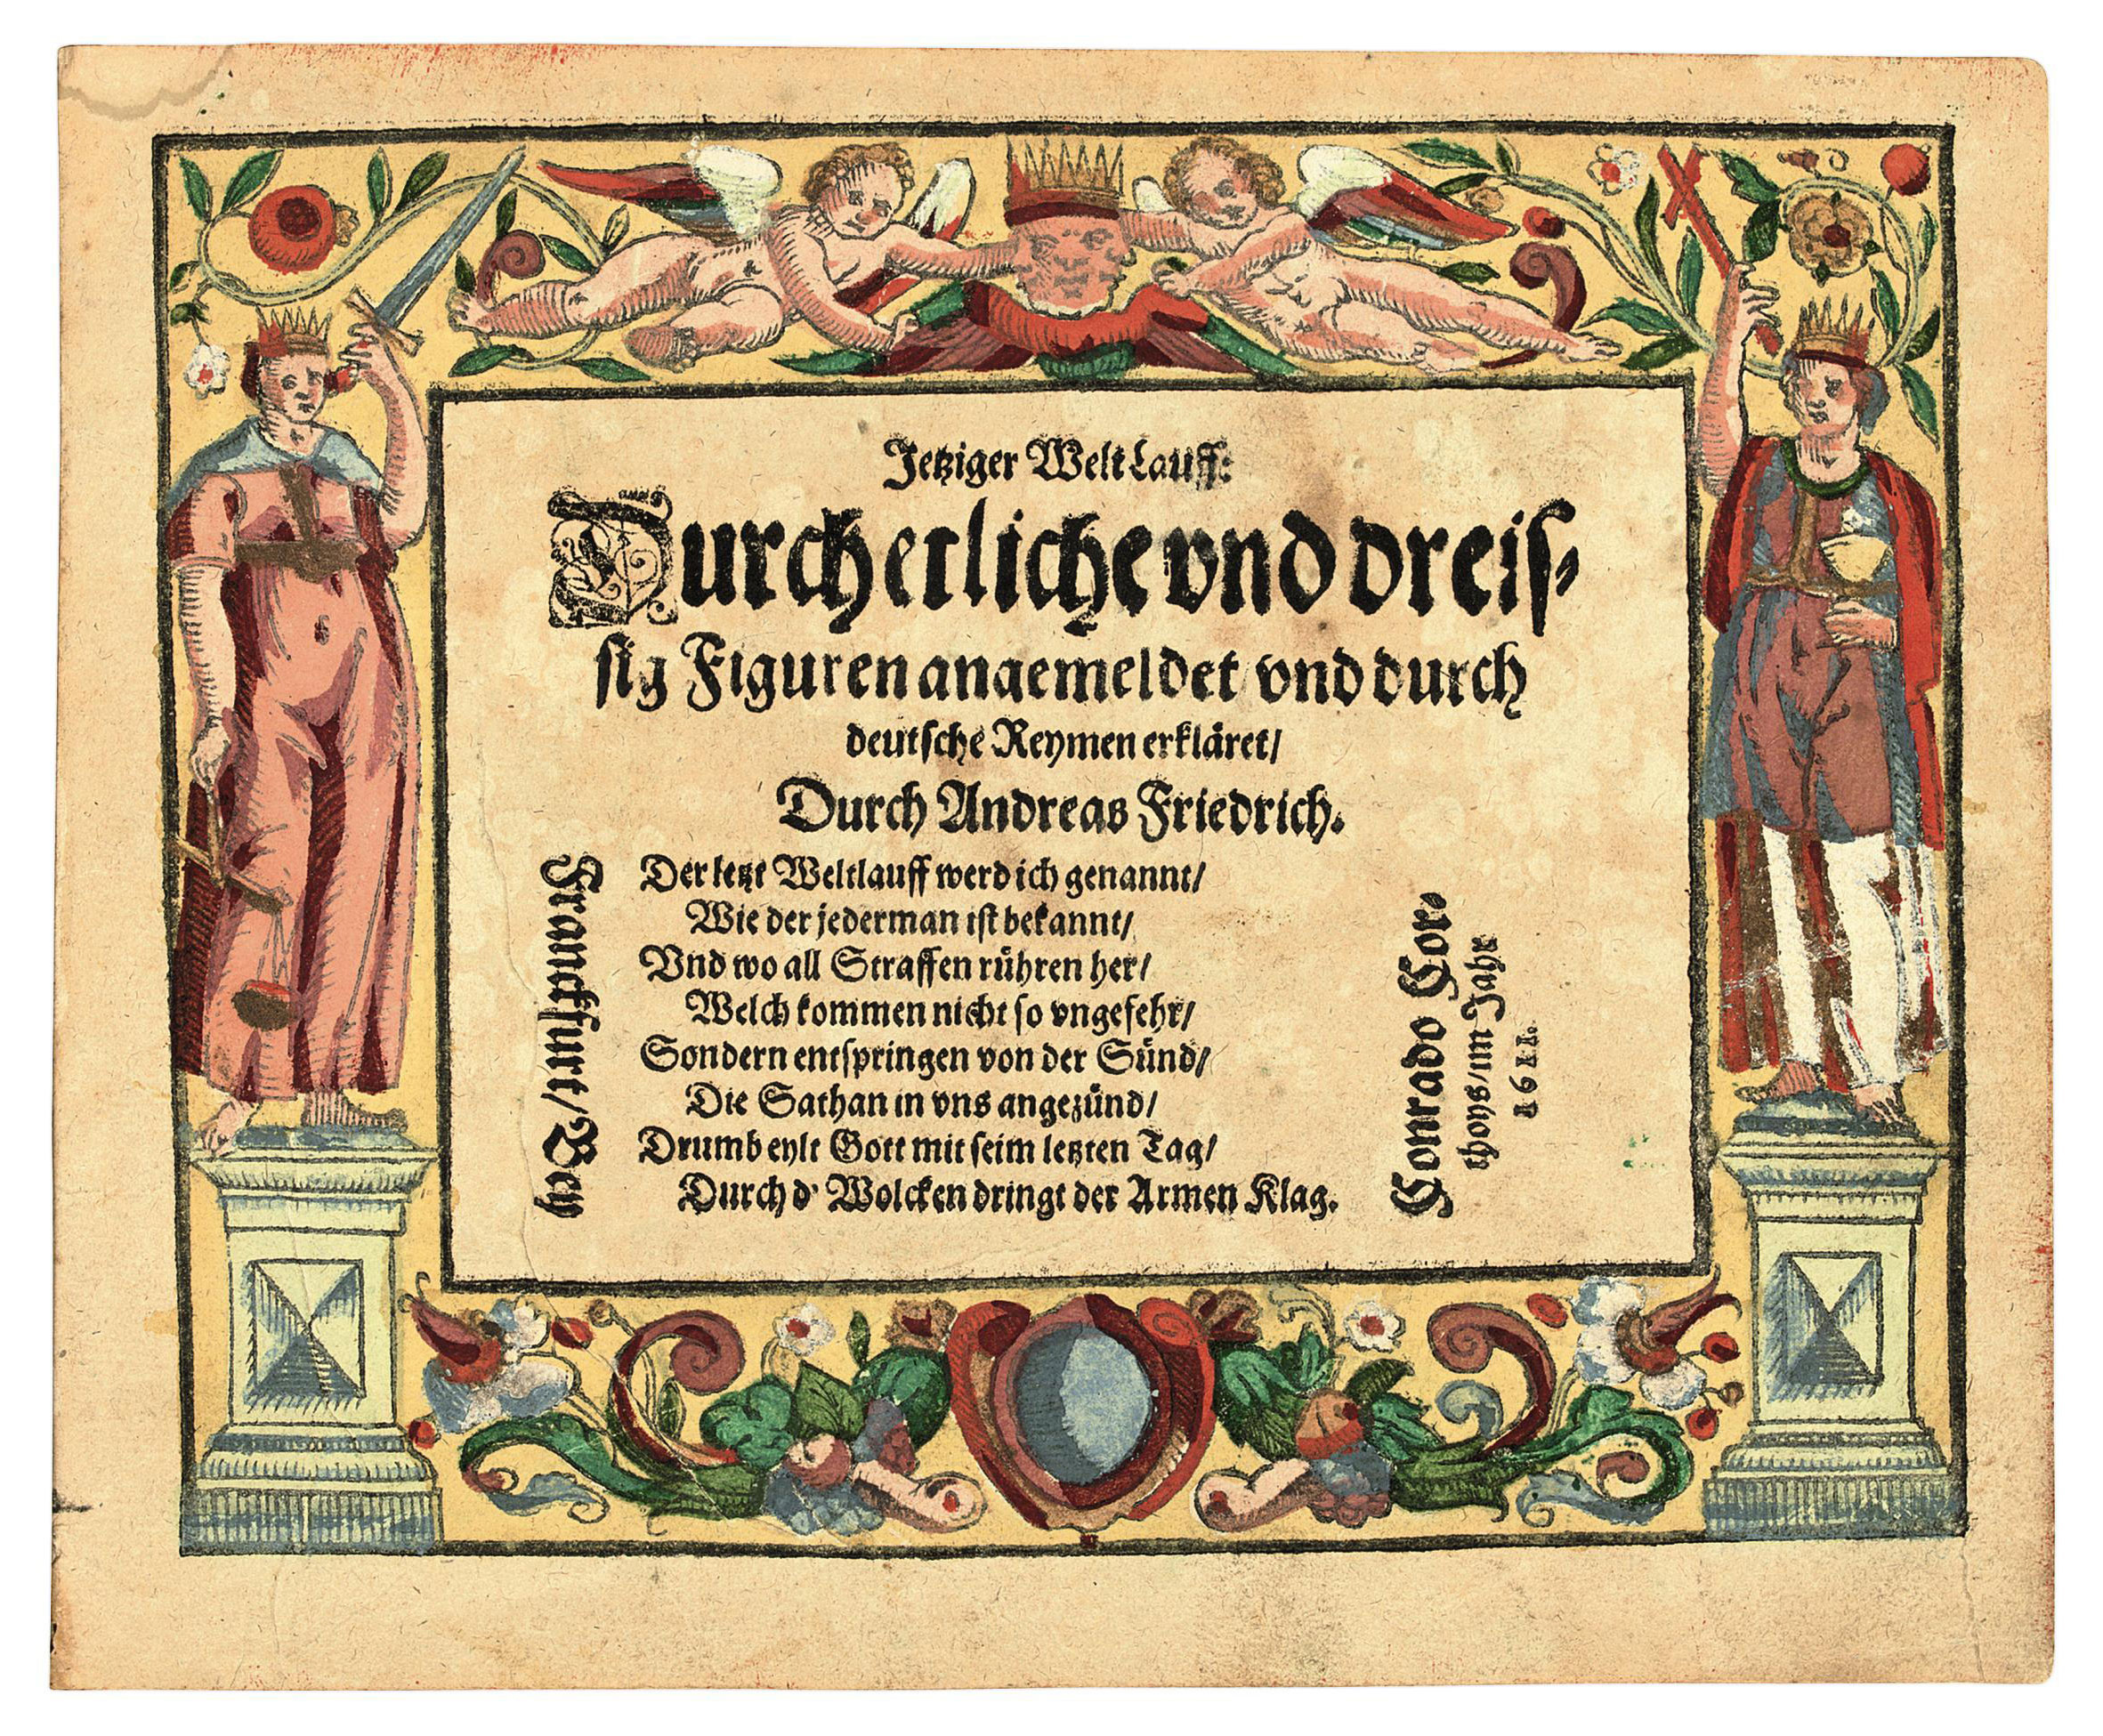 Jetziger Welt Lauff:
Durch etliche vnd dreis-
sig Figuren angemeldet/ vnd durch
deutsche Reymen erkläret/
Durch Andreas Friedrich.
Der letzt Weltlauff werd ich genannt/
Wie der jederman ist bekannt/
Vnd wo all Straffen rühren her/
Welch kommen nicht so vngefehr/
Sondern entspringen von der Sünd/
Die Sathan in vns angezünd/
Drumb eylt Gott mit seim letzten Tag/
Durch d' Wolcken dringt der Armen Klag.
Franckfurt/ Bey
Conrado Cor-
thoys/ im Jahr
1611.